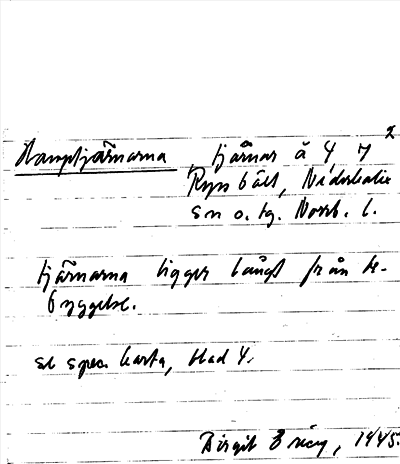 2
Kamptjärnarna, tjärnar å 4, 7
Ryss bält, Nederkalix
sn o. tg. Norrb. l.
tjärnarna ligger långt från be-
byggelse.
se spec. karta, blad 4.
Birgit 1945.